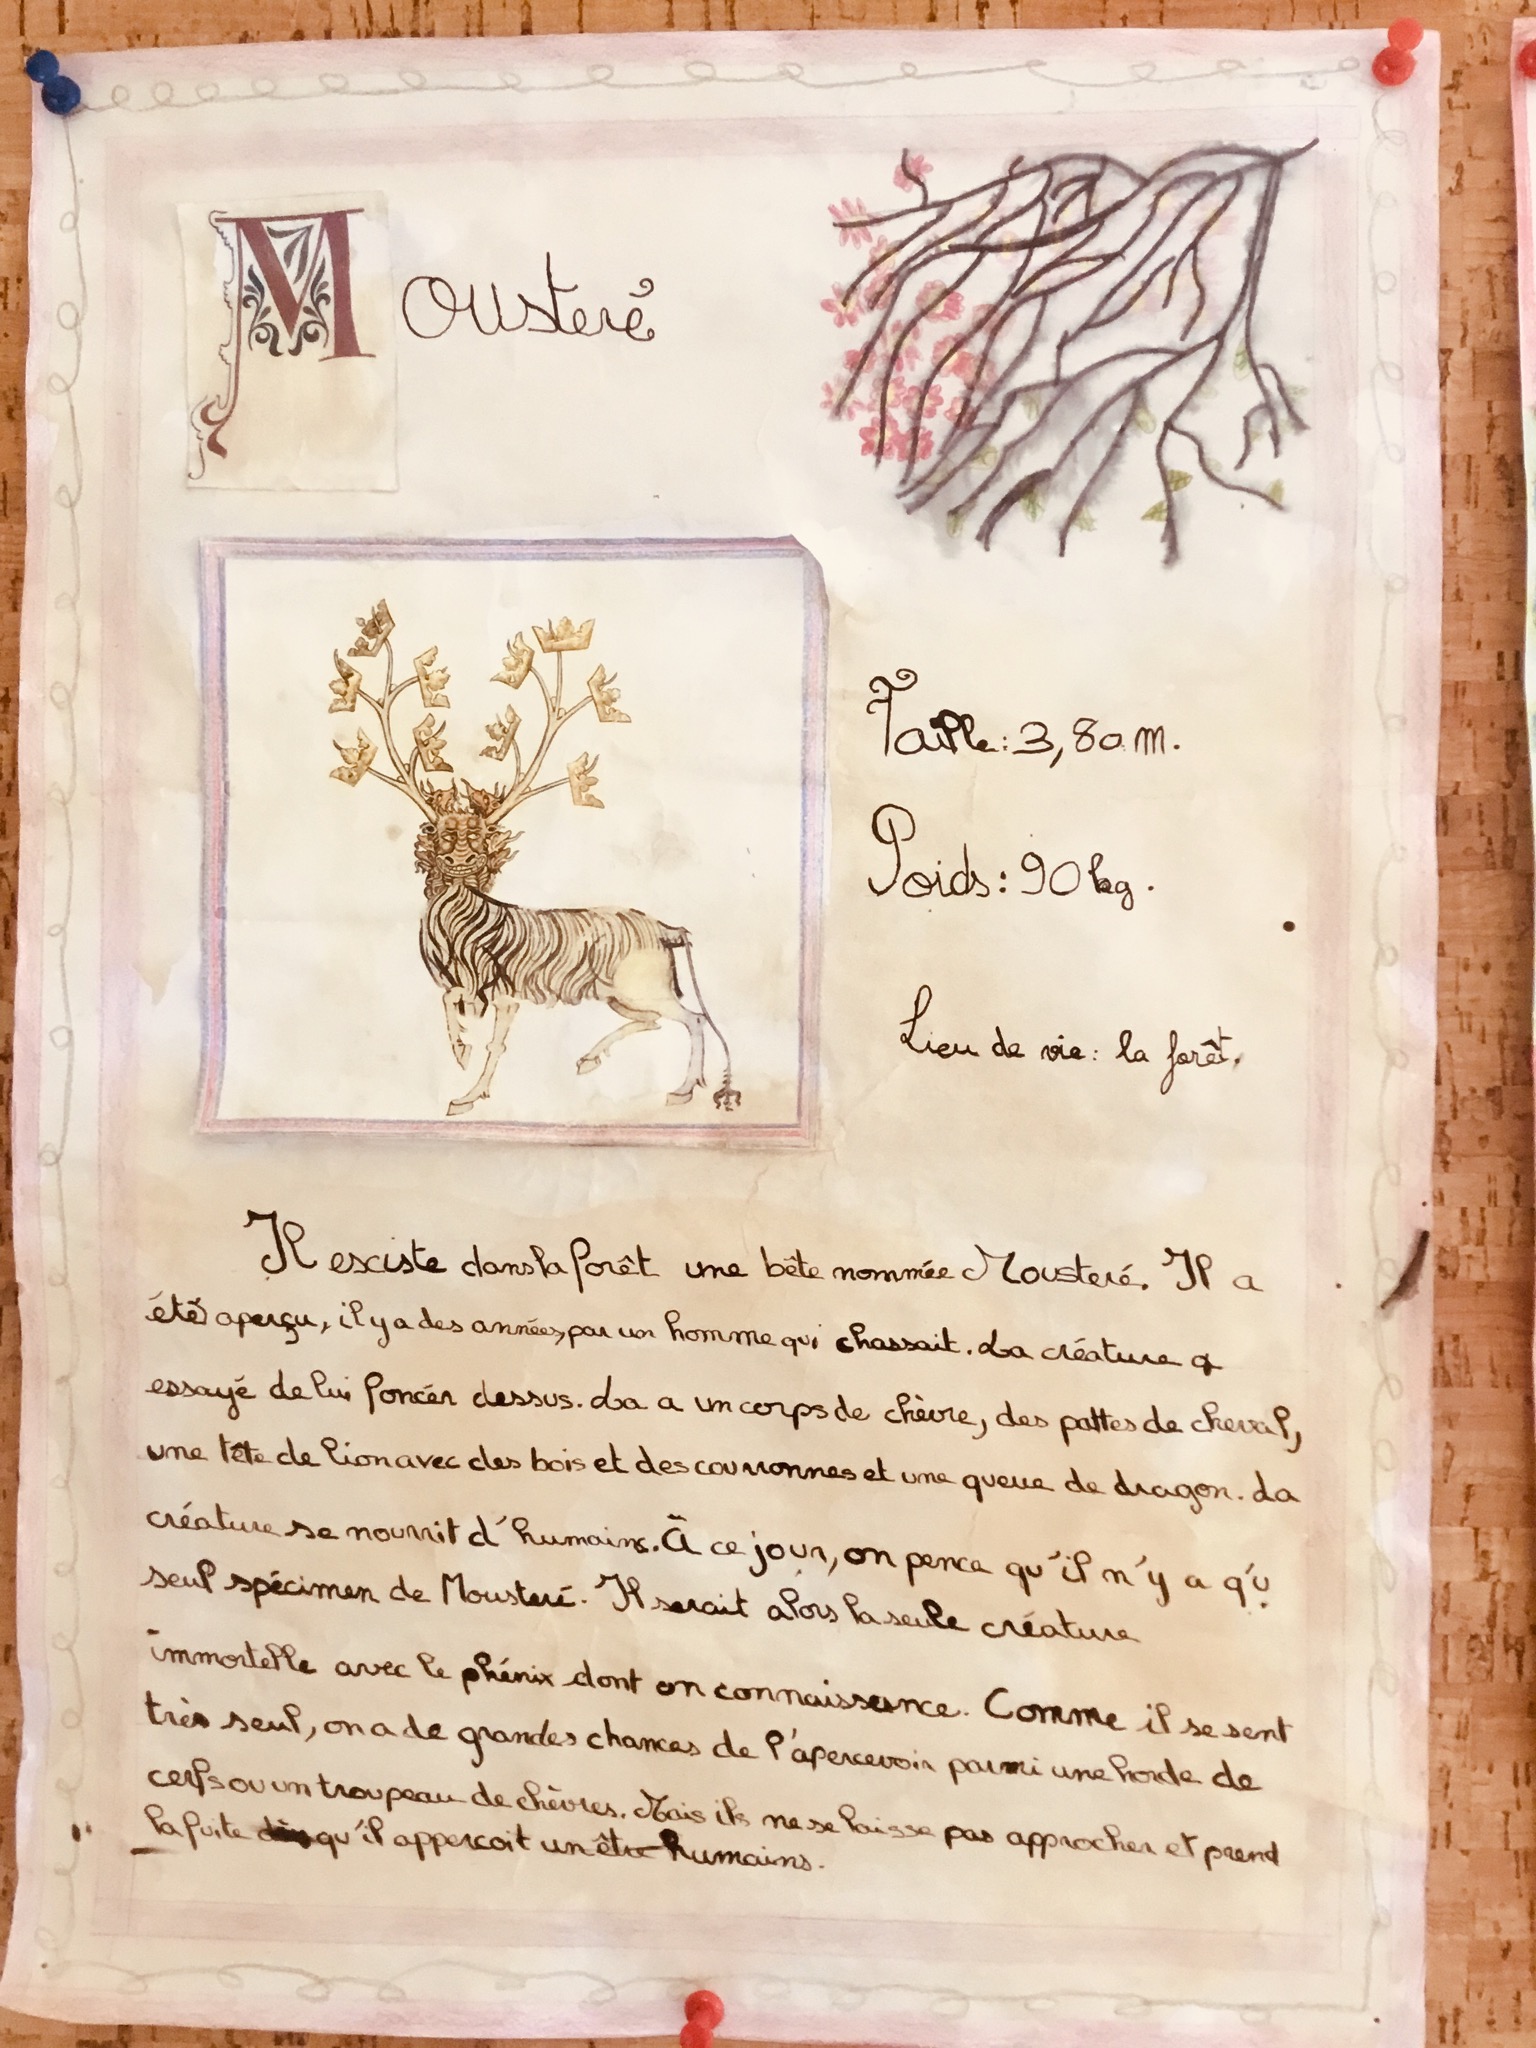 Mousteré
Taille : 3,80 m.
Poids : 90 kg.
Lieu de vie : la forêt.
Il esciste dans la forêt une bête nommée Mousteré. Il a
été aperçu, il y a des années, par un homme qui chassait. La créature a
essayé de lui foncér dessus. La a un corps de chèvre, des pattes de cheval,
une tête de lion avec des bois et des couronnes et une queue de dragon. La
créature se nourrit d'humains. À ce jour, on pence qu'il n'y a q'u
seul spécimen de Mousteré. Il serait alors la seule créature
immortelle avec le phénix dont on connaissance. Comme il se sent
très seul, on a de grandes chances de l'apercevoir parmi une horde de
cerfs ou un troupeau de chèvres. Mais ils ne se laisse pas approcher et prend
la fuite qu'il apperçoit un être humains.